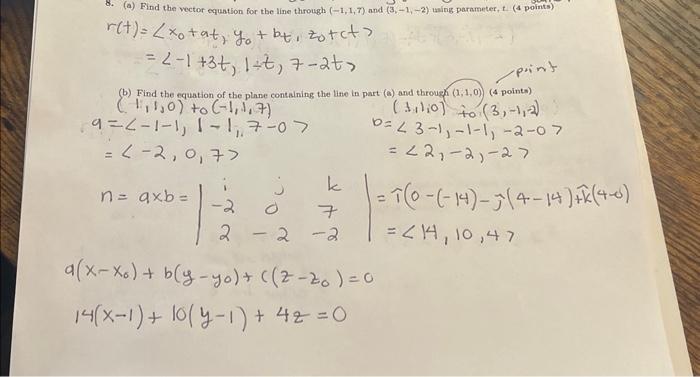 8. (a) Find the vector equation for the line through (−1, 1, 7) and (3, −1, −2) using parameter, t. (4 points)
r(t) = <x₀ + at, y₀ + bt, z₀ + ct>
= <-1 + 3t, 1 - t, 7 - 2t>
point
(b) Find the equation of the plane containing the line in part (a) and through (1, 1, 0) (4 points)
(1,1,0) to (-1,1,7)
a = <-1-1, 1-1, 7-0>
= <-2, 0, 7>
(1,1,0) to (3,-1,-2)
b = <3-1, -1-1, -2-0>
= <2, -2, -2>
n = axb = | i j k |
| -2 0 7 |
| 2 -2 -2 |
= î(0-(-14) - ĵ(4-14) + k̂(4-0)
= <14, 10, 4>
a(x-x₀) + b(y-y₀) + c(z-z₀) = 0
14(x-1) + 10(y-1) + 4z = 0